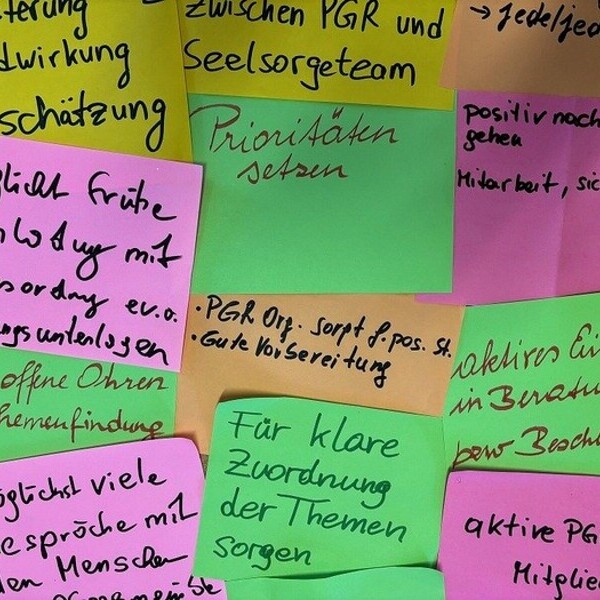 terung
dwirkung
schätzung
zwischen PGR und
Seelsorgeteam
→ jede/jed
Prioritäten
setzen
positiv nach
gehen
Mitarbeit, sic
glicht frühe
nladung mit
sordng ev.a.
ngsunterlagen
• PGR Org. sorgt f. pos. St.
• Gute Vorbereitung
aktives Ei
in Beratu
bzw Besch
offene Ohren
hemenfindung
Für klare
Zuordnung
der Themen
sorgen
öglichst viele
espräche mit
den Menschen
aktive PG
Mitglie